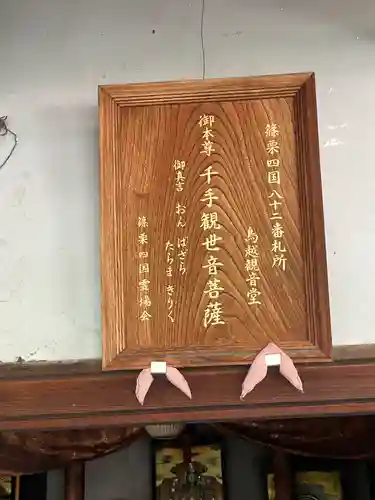 篠栗四国八十二番札所
鳥越観音堂
御本尊 千手観世音菩薩
御真言 おん ばざら
たらま きりく
篠栗四国霊場会